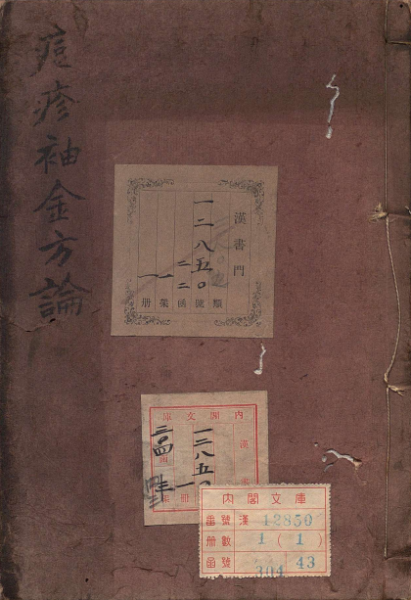 痘疹袖金方論
漢書門
一二八五〇
類
號
函
架
冊
內閣文庫
漢
一二八五〇
二〇四
內閣文庫
番號 漢 12850
冊數 1 ( 1 )
函號 304 43